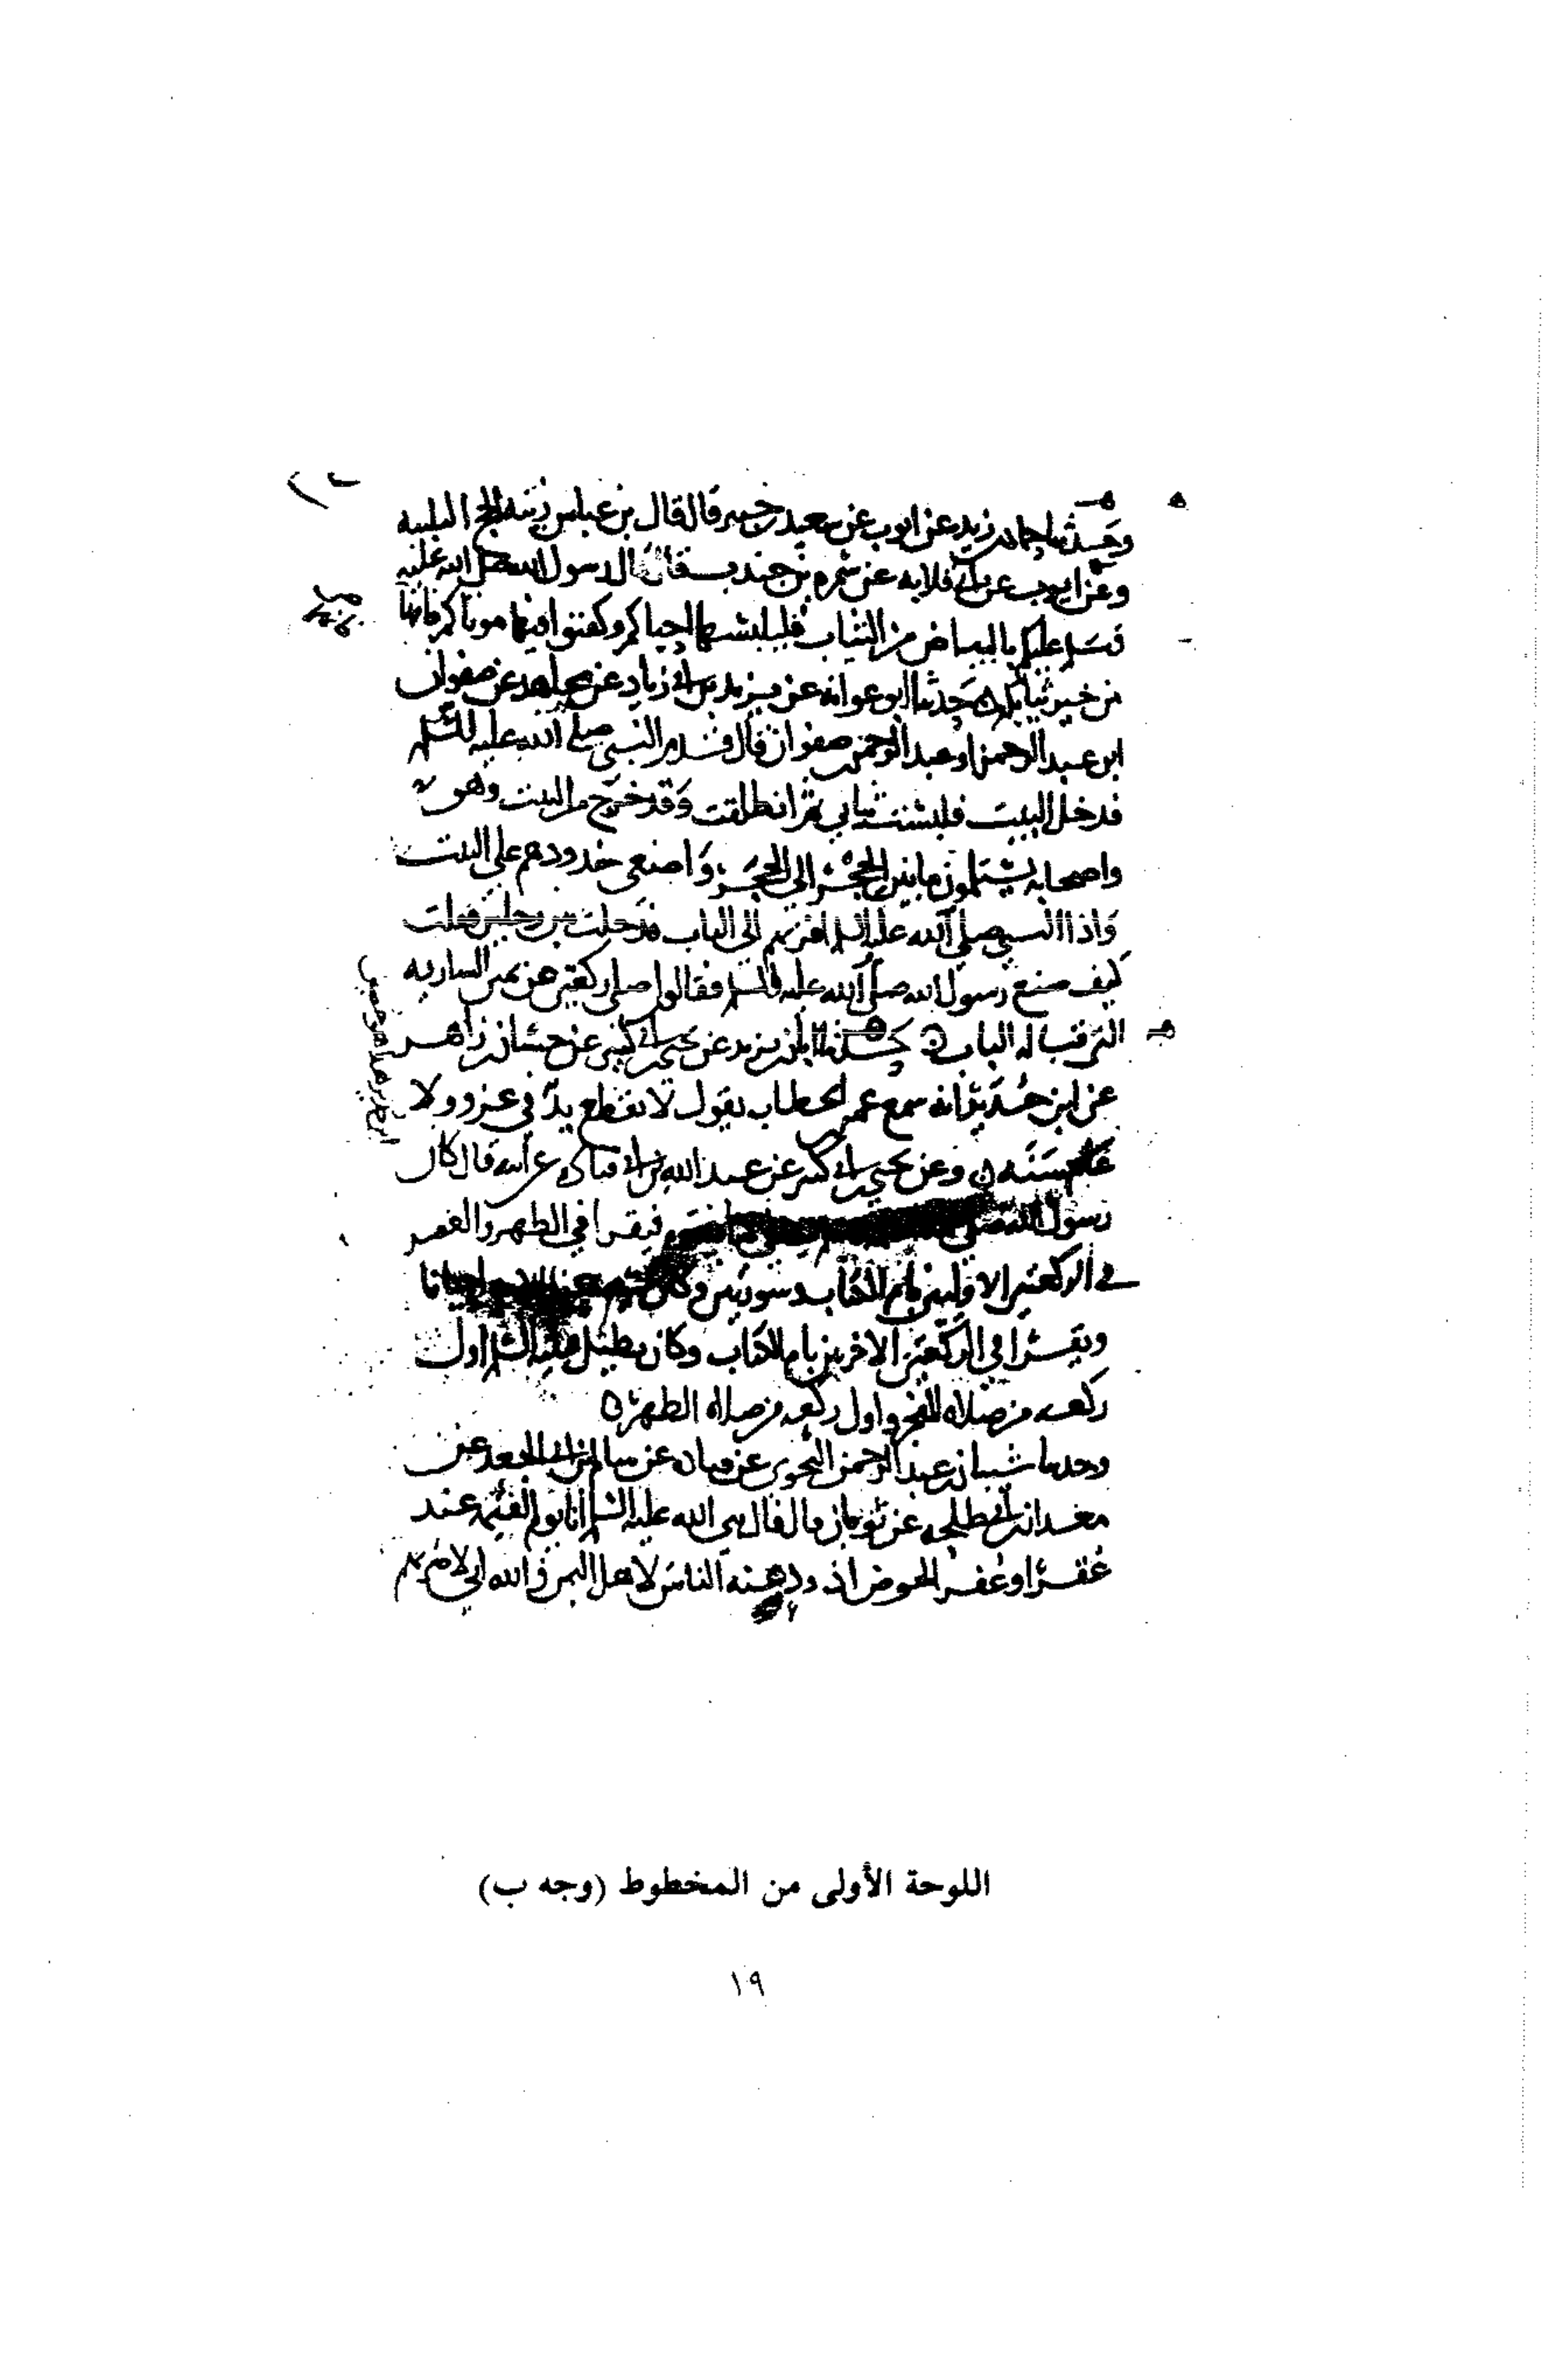 وحدثنا حماد بن زيد عن ايوب عن سعيد بن جبير قال قال بن عباس زينة الحج التلبية
وعن ايوب عن ابي قلابه عن سمره بن جندب قال قال رسول الله صلى الله عليه
وسلم عليكم بالبياض من الثياب فليلبسها احياكم وكفنوا فيها موتاكم فانها
من خير ثيابكم حدثنا ابو عوانه عن يزيد بن ابي زياد عن مجاهد عن صفوان
ابن عبد الرحمن او عبد الرحمن بن صفوان قال قدم النبي صلى الله عليه السلم
فدخل البيت فلبست ثيابي ثم انطلقت وقد خرج من البيت وهو
واصحابه يستلمون ما بين الحجر الى الحجر واضعي خدودهم على البيت
واذا النبي صلى الله عليه السلم اقربهم الى الباب فدخلت بين رجلين فقلت
كيف صنع رسول الله صلى الله عليه والسلم فقالوا صلى ركعتين عن يمين الساريه
التي قباله الباب حدثنا ابان بن يزيد عن يحيى بن ابي كثير عن حسان بن زاهر
عن ابن حدير انه سمع عمر بن الخطاب يقول لا تقطع يد في عزو ولا
عام سنه وعن يحيى بن ابي كثير عن عبد الله بن ابي قتاده عن ابيه قال كان
رسول الله صلى فيقرا في الظهر والعصر
في الركعتين الاوليين بام الكتاب وسورتين وكان احيانا
ويقرا في الركعتين الاخريين بام الكتاب وكان يطيل عليه السلم اول
ركعه من صلاه الفجر واول ركعه من صلاه الظهر
وحدثنا شيبان بن عبد الرحمن النحوي عن قتاده عن سالم بن ابي الجعد عن
معدان بن ابي طلحه عن ثوبان قال قال نبي الله عليه السلم انا يوم القيمه عند
عقر او عقر الحوض اذود عنه الناس لاهل اليمن والله اني لاضربهم
اللوحة الأولى من المخطوط (وجه ب)
١٩